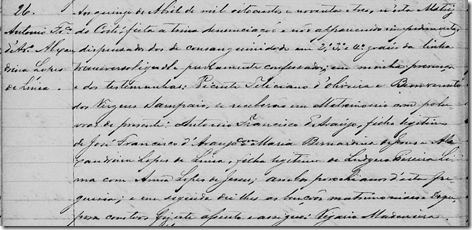 26.
Antonio Fr.co
d'Ar.o Alexan
drina Lopes
de Lima
Aos cinco de Abril de mil oitocentos e noventa e tres, n'esta Matriz
do feita a trina denunciação e não apparecendo impedimento
dispensados do de consanguinidade em 2.º grau da linha
transversal igual puramente confessados, em minha presen
ça e das testemunhas, Vicente Feliciano d'Oliveira e Benvenuto
das Virgens Sampaio, se receberão em Matrimonio com pala
vras de presente Antonio Francisco de Araujo, filho legitimo
de José Francisco d'Araujo e Maria Bernardina de Jesus e Ale
xandrina Lopes de Lima, filha legitima de Li
ma com Anna Lopes de Jesus; ambos parochianos d'esta fre
guesia; e em seguida dei-lhes as bençãos matrimoniaes. E, p.a
constar, fiz este assento e assignei. Vigario